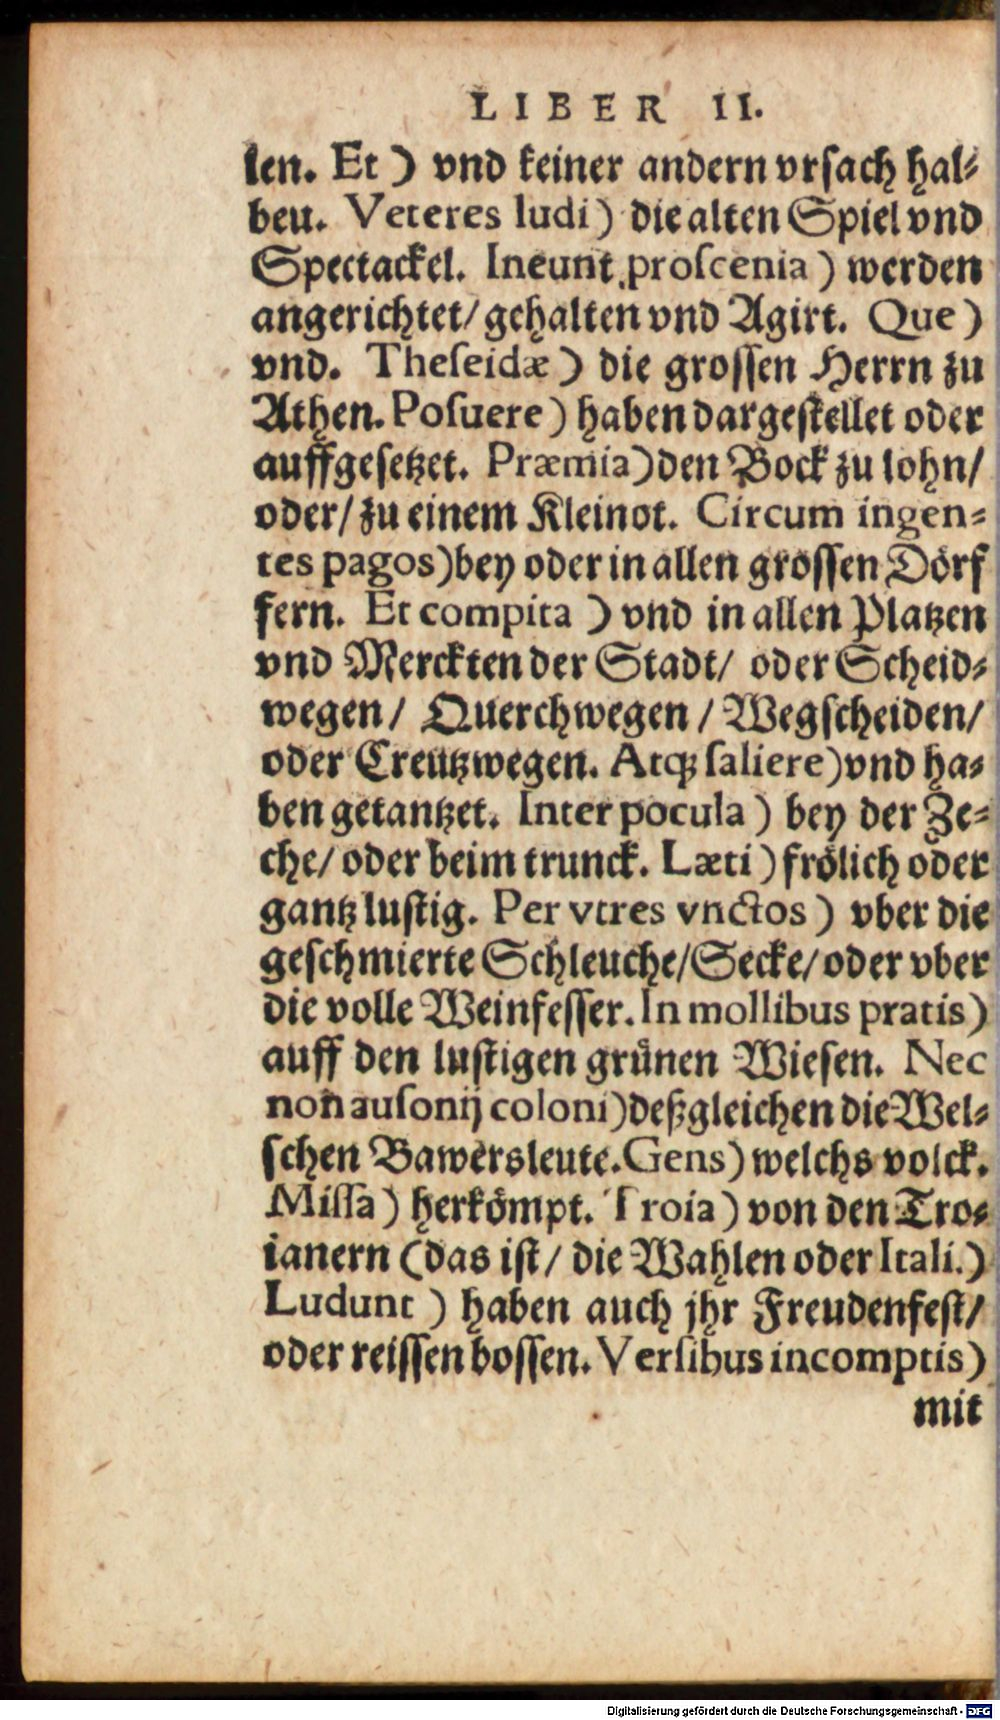 LIBER II.
len. Et) vnd keiner andern vrſach hal⸗
beu. Veteres ludi) die alten Spiel vnd
Spectackel. Ineunt proſcenia) werden
angerichtet/ gehalten vnd Agirt. Que)
vnd. Theſeidæ) die groſſen Herrn zu
Athen. Poſuere) haben dargeſtellet oder
auffgeſetzet. Præmia) den Bock zu lohn/
oder/ zu einem Kleinot. Circum ingen⸗
tes pagos) bey oder in allen groſſen Dörf
fern. Et compita) vnd in allen Platzen
vnd Merckten der Stadt/ oder Scheid⸗
wegen/ Querchwegen/ Wegſcheiden/
oder Creutzwegen. Atq; ſaliere) vnd ha⸗
ben getantzet. Inter pocula) bey der Ze⸗
che/ oder beim trunck. Læti) frölich oder
gantz luſtig. Per vtres vnctos) vber die
geſchmierte Schleuche/ Secke/ oder vber
die volle Weinfeſſer. In mollibus pratis)
auff den luſtigen grünen Wieſen. Nec
non auſonij coloni) deßgleichen die Wel⸗
ſchen Bawersleute. Gens) welchs volck.
Miſſa) herkömpt. Troia) von den Tro⸗
ianern (das iſt/ die Wahlen oder Itali.)
Ludunt) haben auch jhr Freudenfeſt/
oder reiſſen boſſen. Verſibus incomptis)
mit
Digitalisierung gefördert durch die Deutsche Forschungsgemeinschaft - DFG